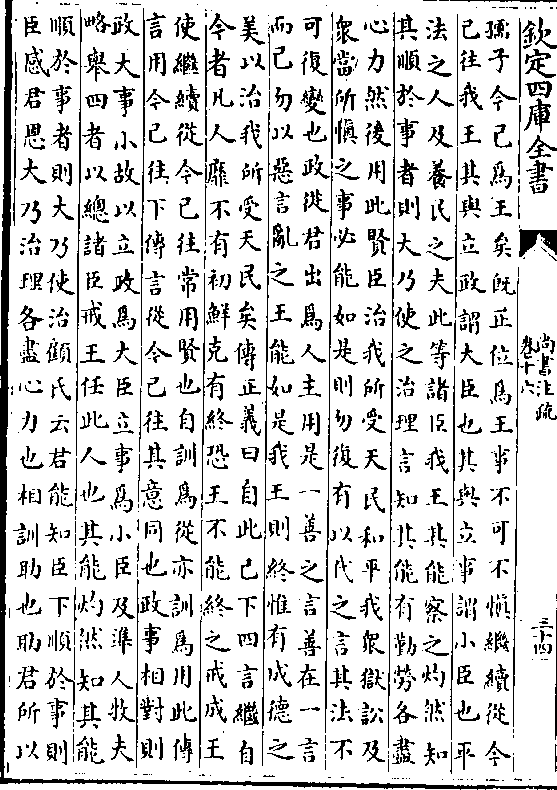 欽定四庫全書
尚書注疏
卷十六
三十四
孺子今已爲王矣既正位爲王事不可不慎繼續從今
已往我王其與立政謂大臣也其與立事謂小臣也平
法之人及養民之夫此等諸臣我王其能察之灼然知
其順於事者則大乃使之治理言知其能有勤勞各盡
心力然後用此賢臣治我所受天民和平我衆獄訟及
衆當所慎之事必能如是則勿復有以代之言其法不
可復變也政從君出爲人主用是一善之言善在一言
而已勿以惡言亂之王能如是我王則終惟有成德之
美以治我所受天民矣傳正義曰自此已下四言繼自
今者凡人靡不有初鮮克有終恐王不能終之戒成王
使繼續從今已往常用賢也自訓爲從亦訓爲用此傳
言用今已往下傳言從今已往其意同也政事相對則
政大事小故以立政爲大臣立事爲小臣及準人牧夫
略舉四者以總諸臣戒王任此人也其能灼然知其能
順於事者則大乃使治顧氏云君能知臣下順於事則
臣感君恩大乃治理各盡心力也相訓助也助君所以